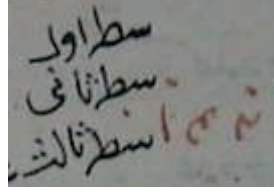 سطر اول
سطر ثانی
سطر ثالث